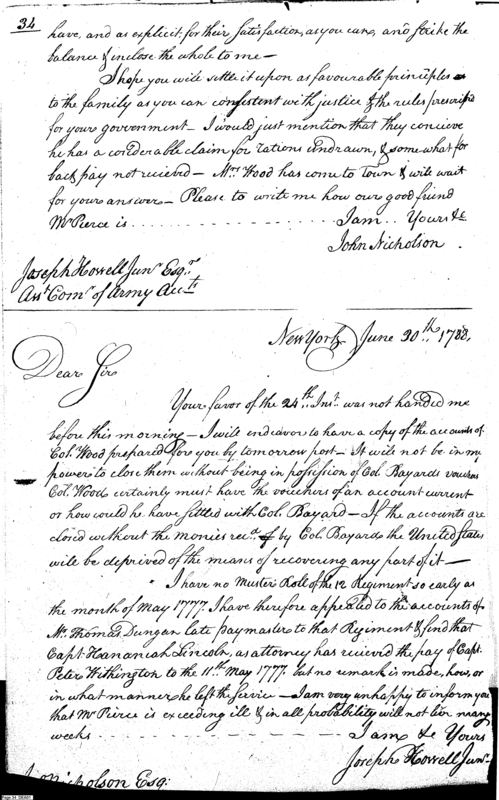 34
have, and as explicit for their satisfaction, as you can, and strike the
balance & inclose the whole to me —
I hope you will settle it upon as favourable principles
to the family as you can consistent with justice & the rules prescrib'd
for your government — I would just mention that they concieve
he has a considerable claim for rations undrawn, & somewhat for
back pay not recieved — Mrs Wood has come to Town & will wait
for your answer — Please to write me how our good friend
Mr Pierce is . . . . . . . . . . . . . . . . I am . . Yours &c
John Nicholson .
Joseph Howell Junr Esqr
Asst Comr of Army Accts
New York June 30th 1788.
Dear Sir
Your favor of the 24th Inst. was not handed me
before this morning — I will endeavor to have a copy of the accounts of
Col. Wood prepared for you by tomorrow post — It will not be in my
power to close them without being in possission of Col Bayards vouchers
Col. Wood certainly must have the vouchers of an account current
or how could he have settled with Col. Bayard — If the accounts are
closed without the monies recd by Col. Bayards the United States
will be deprived of the means of recovering any part of it —
I have no Muster Roll of the 12 Regiment so early as
the month of May 1777. I have therefore appealed to the accounts of
Mr. Thomas Dungan late paymaster to that Regiment & find that
Capt. Hananiah Lincoln, as attorney has recieved the pay of Capt.
Peter Withington to the 11th May 1777. but no remark is made, how, or
in what manner he left the service — I am very unhappy to inform you
that Mr Pierce is exceeding ill & in all probability will not live many
weeks . . . . . . . . . . . . . . . . I am &c Yours
Joseph Howell Junr
Nicholson Esq: